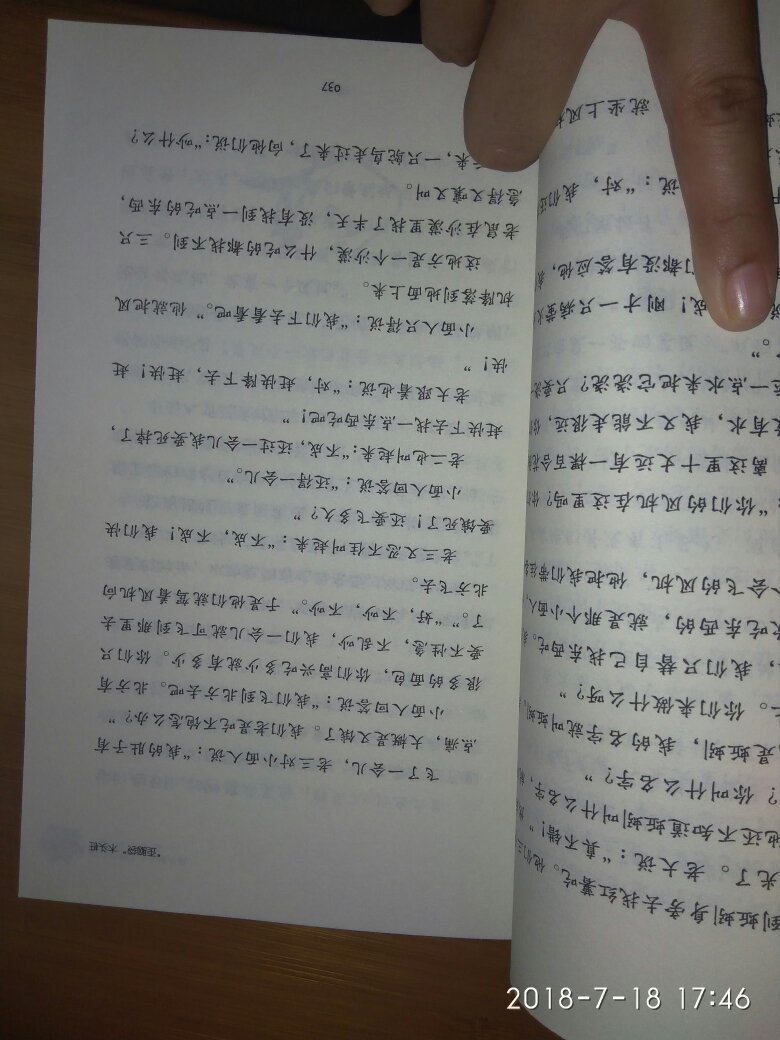 到蚯蚓身旁去找红薯吃。他们三
光了。老大说：“真不错！”
也还不知道蚯蚓叫什么名字，
？你叫什么名字？”
是蚯蚓，我的名字就叫蚯蚓
。你们来做什么呀？”
，我们只替自己找东西吃。
吃东西的，就是那个小面人
会飞的风机，他把我们带
“你们的风机在这里吗？你
离这里十丈远有一棵百合花
没有水，我又不能走很远，你
一点水来把它浇浇？只要浇
。”
成！刚才一只病萤火
们都没有答应他，
说：“对，我们还
就坐上风
“歪脑袋”木头桩
飞了一会儿，老三对小面人说：“我的肚子有
点痛，大概是又饿了。我们老是吃不饱怎么办？”
小面人回答说：“我们飞到北方去吧。北方有
很多的面包，你们高兴吃多少就有多少。你们只
要不性急，不乱吵，我们一会儿就可飞到那里去
了。”“好，不吵，不吵。”于是他们就驾着风机向
北方飞去。
老三又忍不住叫起来：“不成，不成！我们快
要饿死了！还要飞多久？”
小面人回答说：“还得一会儿。”
老二也叫起来：“不成，还过一会儿我要死掉了，
赶快下去找一点东西吃吧！”
老大跟着也说：“对，赶快降下去，赶快！赶
快！”
小面人只得说：“我们下去看看吧。”他就把风
机降落到地面上来。
这地方是一个沙漠，什么吃的都找不到。三只
老鼠在沙漠里找了半天，没有找到一点吃的东西，
急得又嚷又叫。
来，一只鸵鸟走过来了，向他们说：“吵什么？
037
2018-7-18 17:46